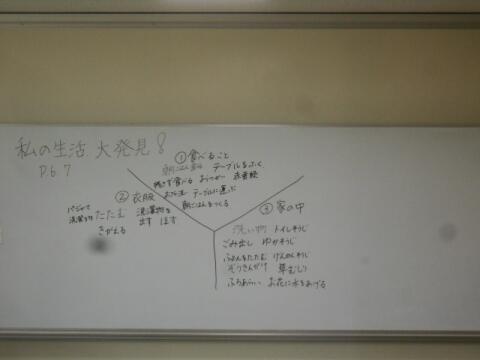 私の生活 大発見!
P.6 7
① 食べること
朝ごはん テーブルをふく
残さず食べる おつかい
テーブルに運ぶ
朝ごはんをつくる
② 衣服
パジャマ たたむ 洗濯物を
洗濯物 出す ほす
きがえる
③ 家の中
洗い物 トイレそうじ
ごみ出し ゆかそうじ
ふとんをたたむ げんかんそうじ
ぞうきんがけ 草むしり
ふろあらい お花に水をあげる